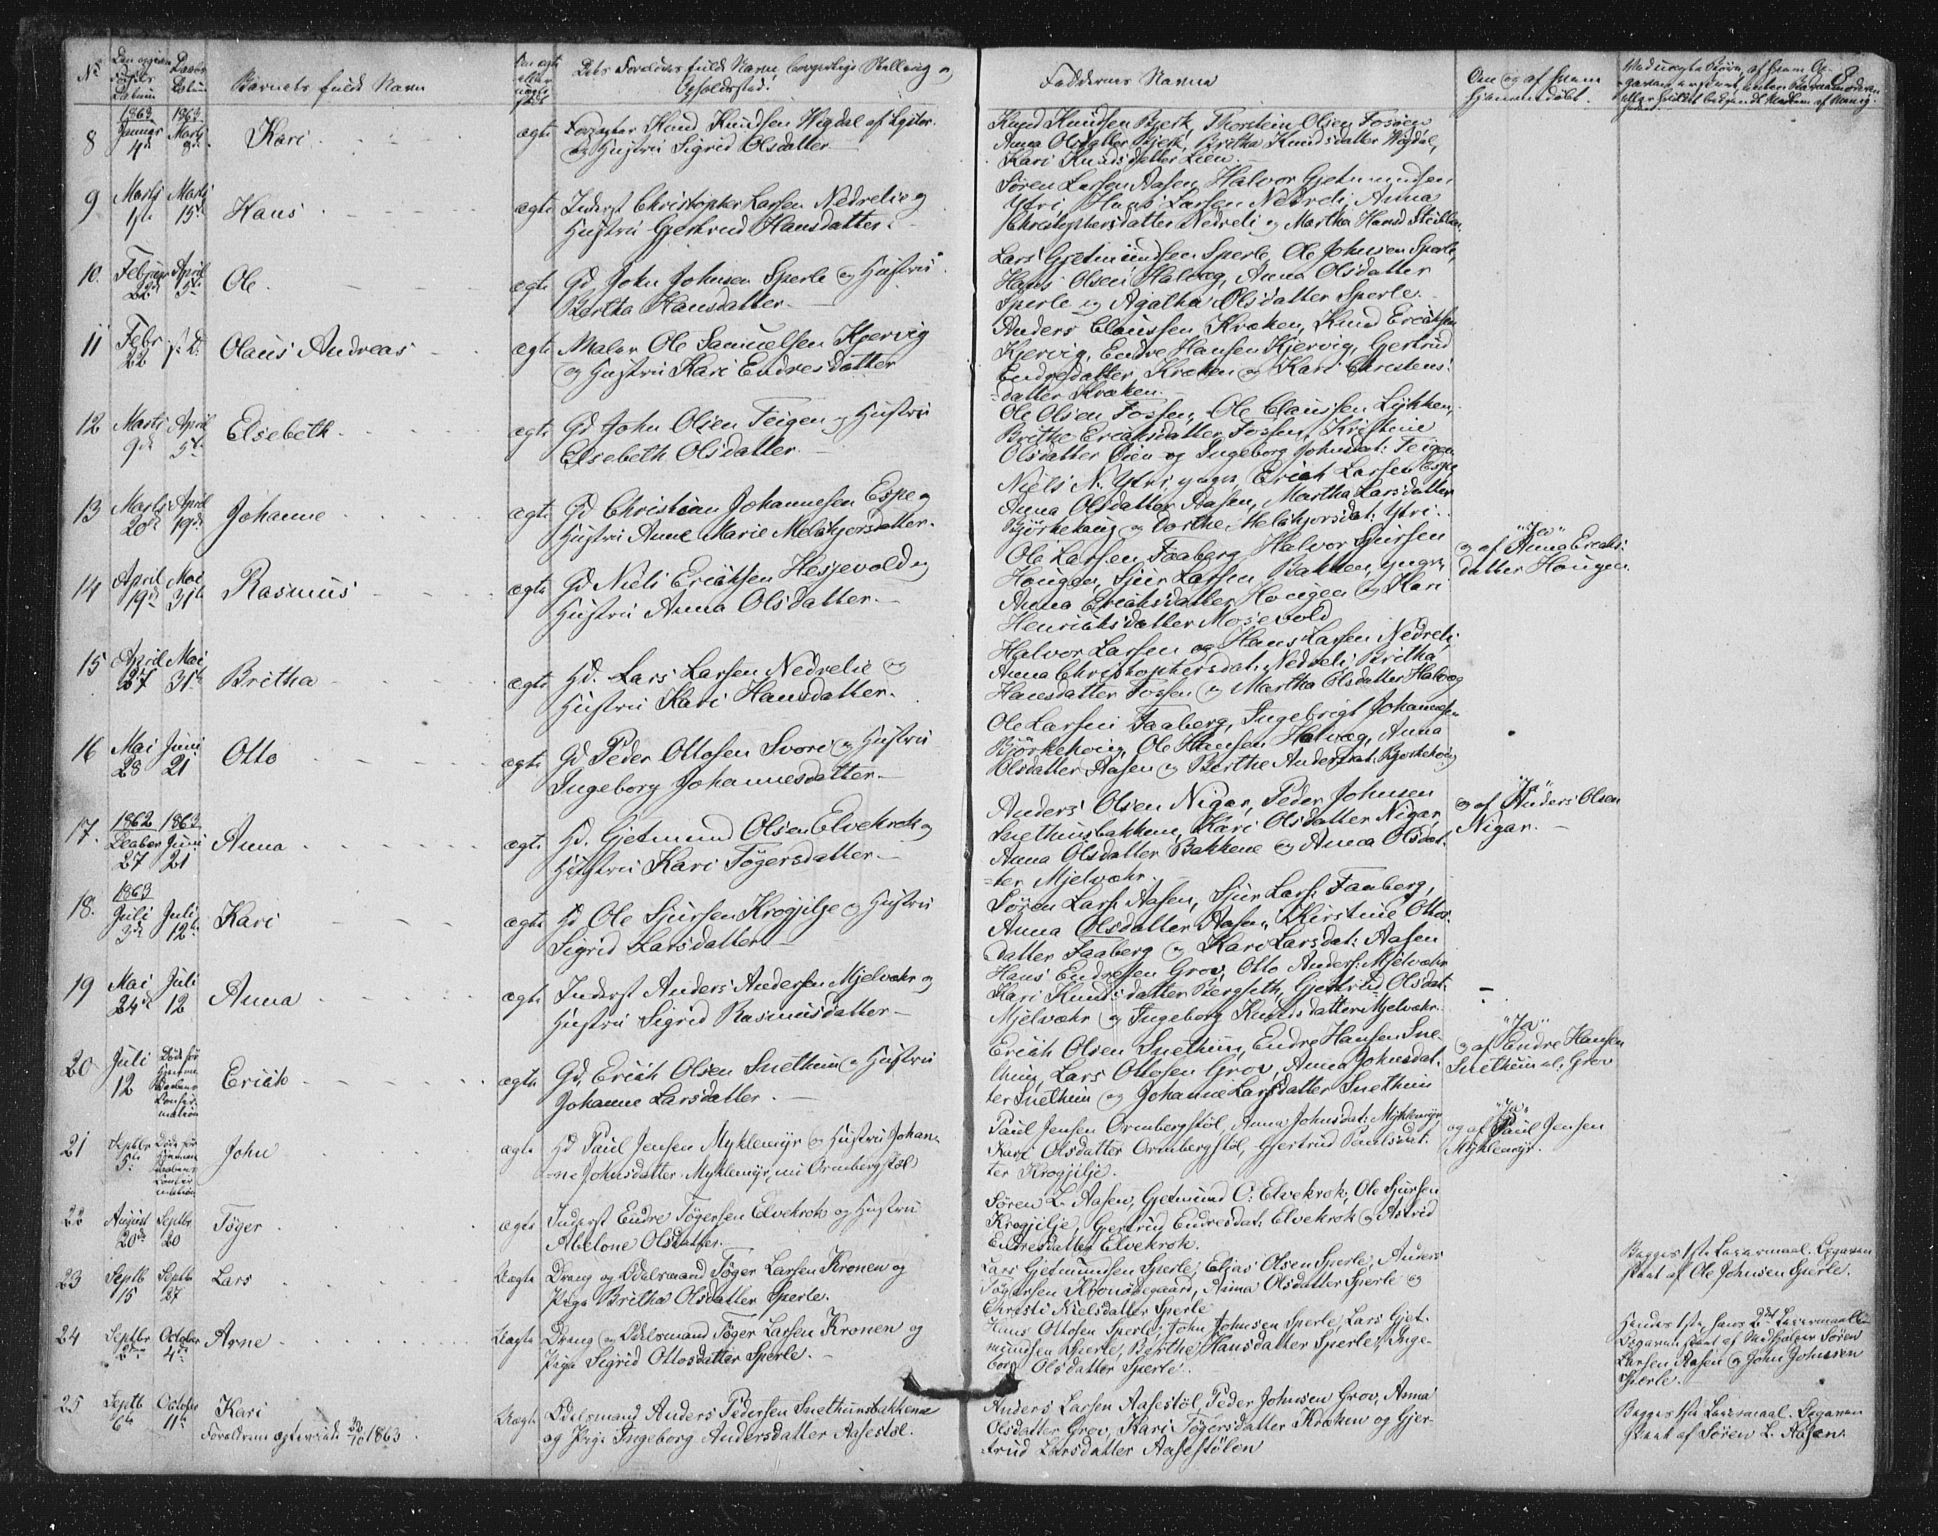 No
Barnets fulde Navn
Dets Forældres fulde Navne, borgerlige Stilling og
Opholdssted.
Faddernes Navne
Om og af hvem
hjemmedøbt.
8
8
1863
Januar
4de
1863
Marts
8de
Kari
ægte
Forpagter Knud Knudsen Wigdal af Lyster
og Hustru Sigrid Olsdatter
Knud Knudsen Bjerk, Thorstein Olsen Fosøen
Anna Olsdatter Bjerk, Britha Knudsdatter Wigdal,
Kari Knudsdatter Lien.
9
Marts
Marts
15de
Hans
ægte
Inderst Christopher Larsen Nedrelie og
Hustru Gjertrud Hansdatter.
Søren Larsen Aasen, Halvor Gjetmundsen
Ytri, Hans Larsen Nedreli, Anna
Christophersdatter Nedreli og Martha Hansd
10.
Februar
22de
April
5te
Ole
ægte
Gd John Johnsen Sperle og Hustru
Bertha Hansdatter.
Lars Gjetmundsen Sperle, Ole Johnsen Sperle,
Hans Olsen Halvæg, Anna Olsdatter
Sperle og Agatha Olsdatter Sperle.
11
Febr
22
Olaus Andreas
ægte
Maler Ole Samuelsen Kjervig
og Hustru Kari Endresdatter
Anders Claussen Kræken, Knud Erichsen
Kjervig, Endre Hansen Kjervig, Gjertrud
Endresdatter Kræken og Kari Christens-
datter Kræken.
12
Marts
9de
April
5te
Elsebeth
ægte
Gd John Olsen Teigen og Hustru
Elsebeth Olsdatter.
Ole Olsen Fossen, Ole Claussen Lykken,
Brithe Erichsdatter Fossen, Kristine
Olsdatter Øien og Ingeborg Johnsdat: Teigen
13
Marts
20de
April
19de
Johanne
ægte
Gd Christian Johannesen Espe og
Hustru Anne Marie Melchjorsdatter.
Niels N. Ytri, yngre, Erich Larsen Espe
Anna Olsdatter Aasen, Martha Larsdatter
Bjørkehaug og Dorthe Melchjorsdat: Ytri.
14
April
19de
Mai
31te
Rasmus
ægte
Gd Niels Erichsen Hesjevold og
Hustru Anna Olsdatter.
Ole Larsen Faaberg, Halvor Sjursen
Hougen, Sjur Larsen Bakken, yngre,
Anna Erichsdatter Hougen og Kari
Henrichsdatter Mosevold
"Ja"
og af Anna Erichs-
datter Hougen
15
April
27
Mai
31te
Britha
ægte
Gd. Lars Larsen Nedrelie og
Hustru Kari Hansdatter.
Halvor Larsen og Hans Larsen Nedreli,
Anna Christophersdat: Nedreli, Britha
Hansdatter Fossen og Martha Olsdatter Halvæg
16
Mai
28
Juni
21
Otto
ægte
Gd Peder Ottosen Svori og Hustru
Ingeborg Johannesdatter.
Ole Larsen Faaberg, Ingebrigt Johannesen
Bjørkehaug, Ole Hansen Halvæg, Anna
Olsdatter Aasen og Berthe Andersdat: Bjørkehoug
17.
1862
Decbber
27
1863
Juni
21
Anna
ægte
Gd. Gjetmund Olsen Elvekrok og
Hustru Kari Tøgersdatter.
Anders Olsen Nigar, Peder Johnsen
Snethunsbakkene, Kari Olsdatter Nigar,
Anna Olsdatter Bakkene og Anna Olsdat-
ter Mjelvæhr.
"Ja"
og af Anders Olsen
Nigar.
18.
1863
Juli
3de
Juli
12te
Kari
ægte
Gd Ole Sjursen Krogjilje og Hustru
Sigrid Larsdatter
Søren Lars: Aasen, Sjur Lars: Faaberg,
Anna Olsdatter Aasen, Kirstine Ottos-
datter Faaberg og Kari Larsdat: Aasen
19
Mai
24de
Juli
12
Anna
ægte
Inderst Anders Andersen Mjelvæhr og
Hustru Sigrid Rasmusdatter
Hans Endresen Grov, Otto Anders: Mjelvæhr
Kari Knudsdatter Bergseth, Gjertrud Olsdat:
Mjelvæhr og Ingeborg Knudsdatter Mjelvæhr.
20
Juli
12
Erich
ægte
Gd, Erich Olsen Snethun og Hustru
Johanne Larsdatter.
Erich Olsen Snethun, Endre Hansen Sne-
thun, Lars Ottosen Grov, Anna Johnsdat-
ter Snethun og Johanne Larsdatter Snethun
"Ja"
og af Endre Hansen
Snethun al: Grov
21
Septbr
5te
John
ægte
Gd Paul Jensen Myklemyr og Hustru Johan-
ne Johnsdatter Myklemyr, nu Ormbergstøl
Paul Jensen Ormbergstøl, Anna Johnsdat: Myklemyr
Kari Olsdatter Ormbergstøl, Gjertrud Paulsdat-
ter Krogjilje
"Ja"
og af Paul Jensen
Myklemyr.
22
August
20de
Septbr
20
Tøger
ægte
Inderst Endre Tøgersen Elvekrok og Hustru
Abelone Olsdatter.
Søren L. Aasen, Gjetmund O: Elvekrok, Ole Sjursen
Krogjilje, Gjertrud Endresdat. Elvekrok og Astrid
Endresdatter Elvekrok.
23
Septb
15
Septb
27
Lars
Uægte
Dreng og Odelsmand Tøger Larsen Kronen og
Pige Britha Olsdatter Sperle.
Lars Gjetmundsen Sperle, Elias Olsen Sperle, Anders
Tøgersen Kronødegaard, Anna Olsdatter Sperle og
Christi Nielsdatter Sperle
Begges 1ste Leiermaal. Begaven
skent af Ole Johnsen Sperle.
24
Septbr
October
4de
Arne
Uægte
Dreng og Odelsmand Tøger Larsen Kronen og
Pige Sigrid Ottosdatter Sperle.
Hans Ottosen Sperle, John Johnsen Sperle, Lars Gjet-
mundsen Sperle, Berthe Hansdatter Sperle, Inge-
borg Olsdatter Sperle.
Hendes 1ste, hans 2det Leiermaal
Søren
Larsen Aasen og John Johnsen
Sperle.
25
Septb
6te
October
11te
Kari
Forældrene ægteviede 1863.
Uægte
Odelsmand Anders Pedersen Snethunsbakkene
og Pige Ingeborg Andersdatter Aasestøl.
Anders Larsen Aasestøl, Peder Johnsen Grov, Anna
Olsdatter Grov, Kari Tøgersdatter Kræken og Gjer-
trud Larsdatter Aasestølen
Begges 1ste Leiermaal.
af Søren L. Aasen.